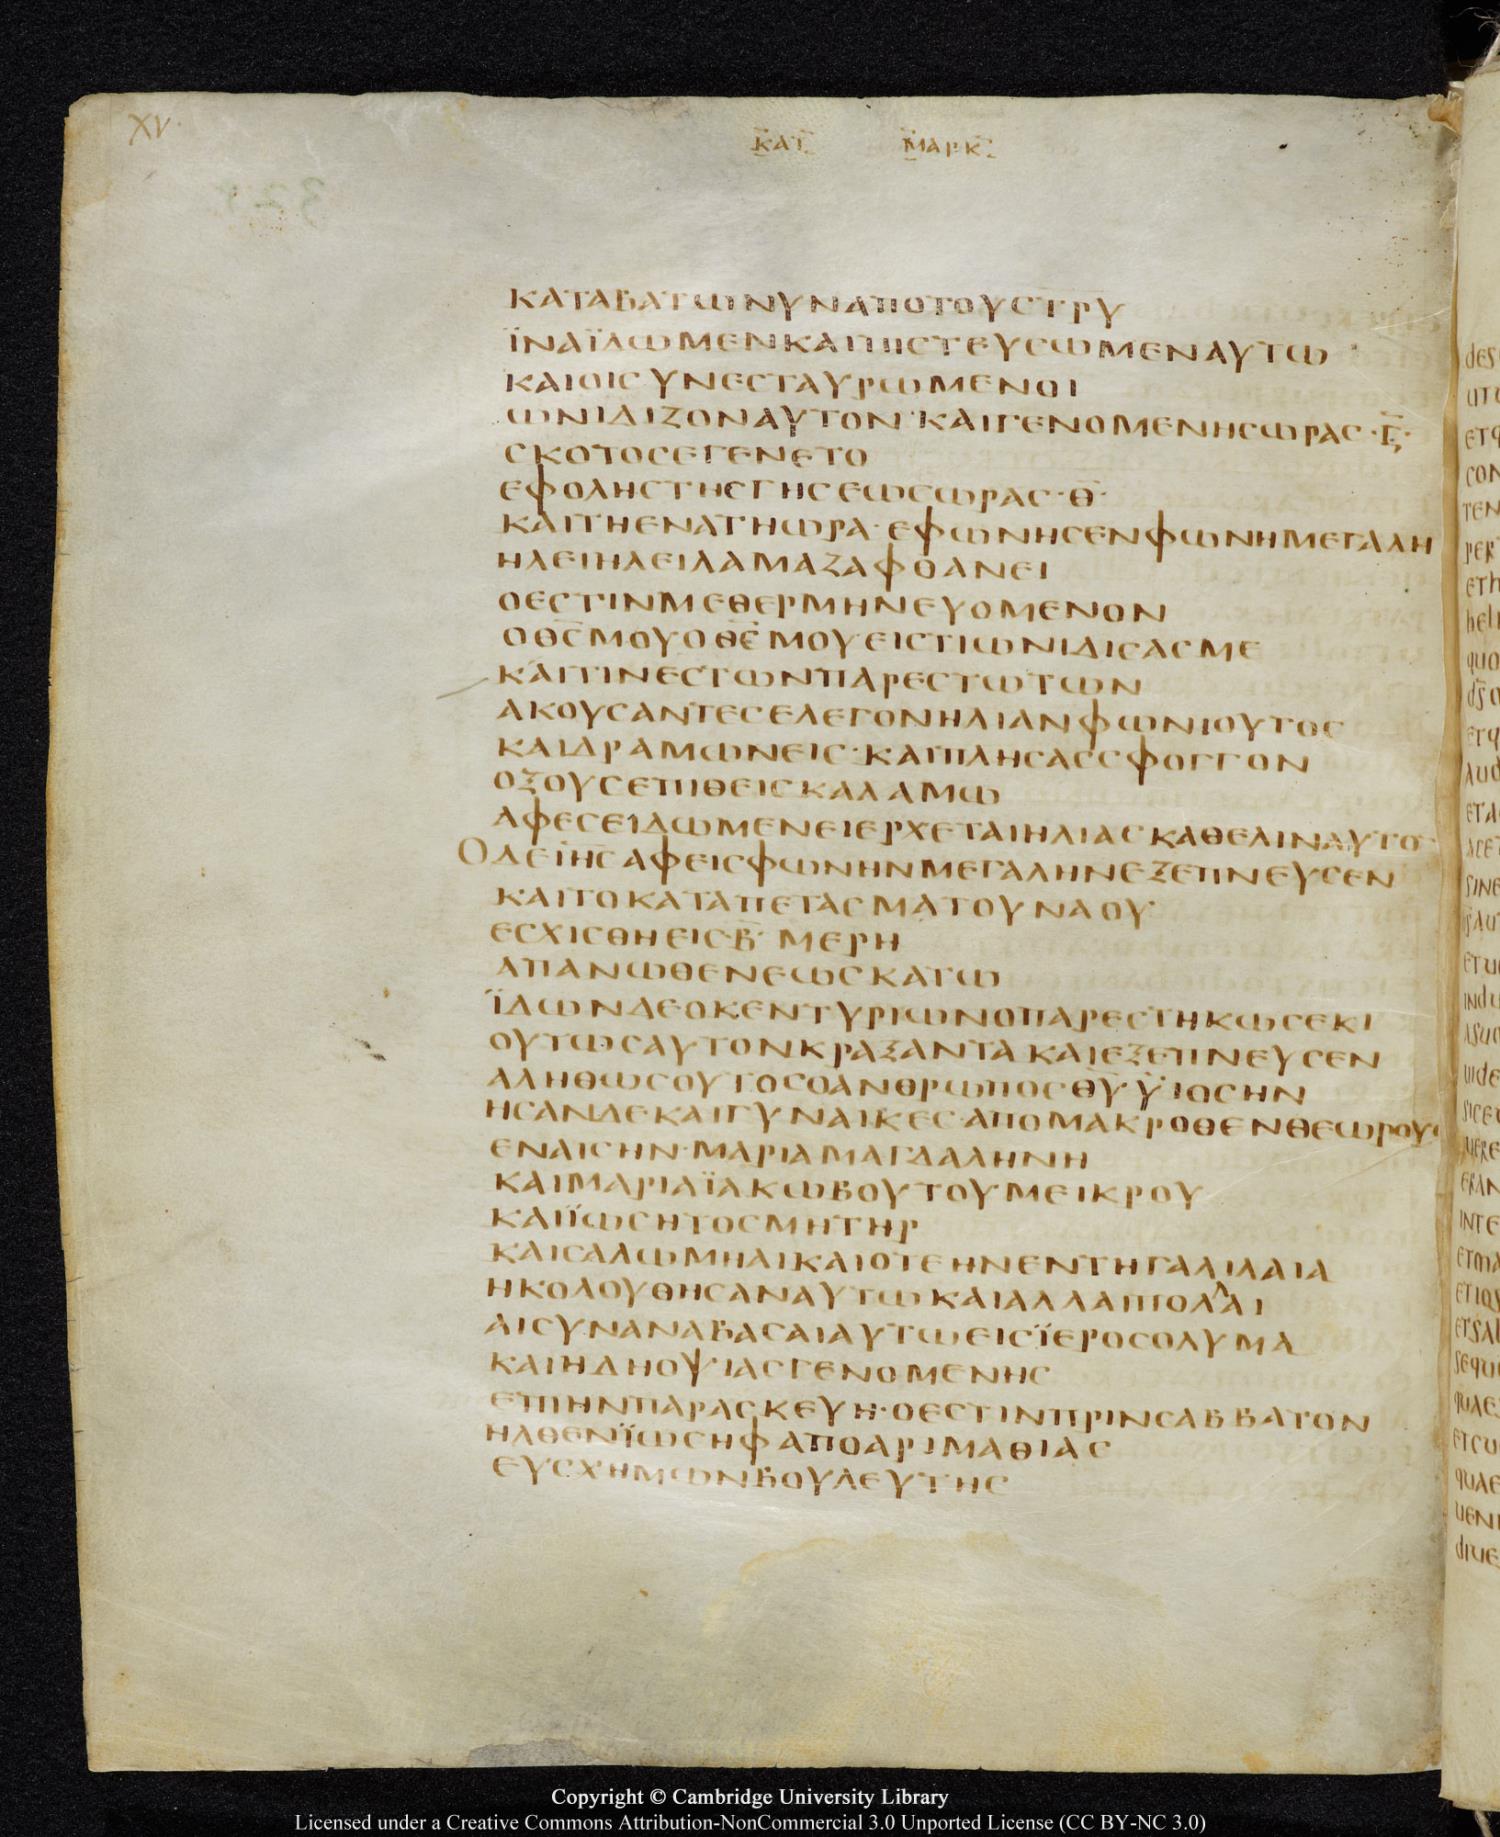 XV.
ΚΑΤ ΜΑΡΚ
ΚΑΤΑΒΑΤΩΝΥΝΑΠΟΤΟΥΣΤΡΥ
ΪΝΑΪΔΩΜΕΝΚΑΙΠΙΣΤΕΥΣΩΜΕΝΑΥΤΩ
ΚΑΙΟΙΣΥΝΕΣΤΑΥΡΩΜΕΝΟΙ
ΩΝΙΔΙΖΟΝΑΥΤΟΝ·ΚΑΙΓΕΝΟΜΕΝΗΣΩΡΑΣ·Ϛ̅·
ΣΚΟΤΟΣΕΓΕΝΕΤΟ
ΕΦΟΛΗΣΤΗΣΓΗΣΕΩΣΩΡΑΣ·Θ̅·
ΚΑΙΤΗΕΝΑΤΗΩΡΑ·ΕΦΩΝΗΣΕΝΦΩΝΗΜΕΓΑΛΗ
ΗΛΕΙΗΛΕΙΛΑΜΑΖΑΦΘΑΝΕΙ
ΟΕΣΤΙΝΜΕΘΕΡΜΗΝΕΥΟΜΕΝΟΝ
ΟΘ̅Σ̅ΜΟΥΟΘ̅Σ̅ΜΟΥΕΙΣΤΙΩΝΙΔΙΣΑΣΜΕ
ΚΑΙΤΙΝΕΣΤΩΝΠΑΡΕΣΤΩΤΩΝ
ΑΚΟΥΣΑΝΤΕΣΕΛΕΓΟΝΗΛΙΑΝΦΩΝΙΟΥΤΟΣ
ΚΑΙΔΡΑΜΩΝΕΙΣ·ΚΑΙΠΛΗΣΑΣΣΦΟΓΓΟΝ
ΟΞΟΥΣΕΠΙΘΕΙΣΚΑΛΑΜΩ
ΑΦΕΣΕΙΔΩΜΕΝΕΙΕΡΧΕΤΑΙΗΛΙΑΣΚΑΘΕΛΙΝΑΥΤΟ̅
ΟΔΕΙ̅Η̅Σ̅ΑΦΕΙΣΦΩΝΗΝΜΕΓΑΛΗΝΕΞΕΠΝΕΥΣΕΝ
ΚΑΙΤΟΚΑΤΑΠΕΤΑΣΜΑΤΟΥΝΑΟΥ
ΕΣΧΙΣΘΗΕΙΣ·Β̅·ΜΕΡΗ
ΑΠΑΝΩΘΕΝΕΩΣΚΑΤΩ
ΪΔΩΝΔΕΟΚΕΝΤΥΡΙΩΝΟΠΑΡΕΣΤΗΚΩΣΕΚΙ
ΟΥΤΩΣΑΥΤΟΝΚΡΑΞΑΝΤΑΚΑΙΕΞΕΠΝΕΥΣΕΝ
ΑΛΗΘΩΣΟΥΤΟΣΟΑΝΘΡΩΠΟΣΘ̅Υ̅ΫΙΟΣΗΝ
ΗΣΑΝΔΕΚΑΙΓΥΝΑΙΚΕΣ·ΑΠΟΜΑΚΡΟΘΕΝΘΕΩΡΟΥΣ
ΕΝΑΙΣΗΝ·ΜΑΡΙΑΜΑΓΔΑΛΗΝΗ
ΚΑΙΜΑΡΙΑΪΑΚΩΒΟΥΤΟΥΜΕΙΚΡΟΥ
ΚΑΙΪΩΣΗΤΟΣΜΗΤΗΡ
ΚΑΙΣΑΛΩΜΗΑΙΚΑΙΟΤΕΗΝΕΝΤΗΓΑΛΙΛΑΙΑ
ΗΚΟΛΟΥΘΗΣΑΝΑΥΤΩΚΑΙΑΛΛΑΙΠΟΛΛΑΙ
ΑΙΣΥΝΑΝΑΒΑΣΑΙΑΥΤΩΕΙΣΪΕΡΟΣΟΛΥΜΑ
ΚΑΙΗΔΗΟΨΙΑΣΓΕΝΟΜΕΝΗΣ
ΕΠΙΗΝΠΑΡΑΣΚΕΥΗ·ΟΕΣΤΙΝΠΡΙΝΣΑΒΒΑΤΟΝ
ΗΛΘΕΝΪΩΣΗΦΑΠΟΑΡΙΜΑΘΙΑΣ
ΕΥΣΧΗΜΩΝΒΟΥΛΕΥΤΗΣ
Copyright © Cambridge University Library
Licensed under a Creative Commons Attribution-NonCommercial 3.0 Unported License (CC BY-NC 3.0)